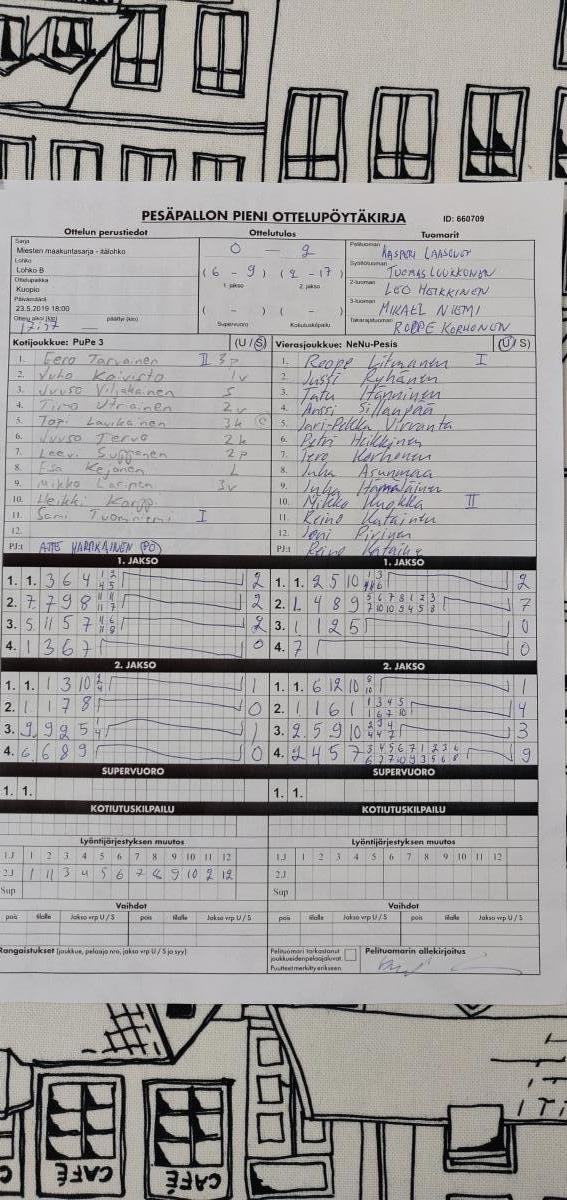 PESÄPALLON PIENI OTTELUPÖYTÄKIRJA ID: 660709
Ottelun perustiedot Ottelutulos Tuomarit
Sarja
Miesten maakuntasarja - itälohko
Lohko
Lohko B
Ottelupaikka
Kuopio
Päivämäärä
23.5.2019 18:00
Ottelu alkoi (klo) päättyi (klo)
17:57
0 - 2
(6 - 9) (2 - 17)
1. jakso 2. jakso
( - ) ( - )
Supervuoro Kotiutuskilpailu
Pelituomari KASPERI
Syöttötuomari TUOMAS LUUKKONEN
2-tuomari LEO HEIKKINEN
3-tuomari MIKAEL NIEMI
Takarajatuomari ROOPE KORHONEN
Kotijoukkue: PuPe 3 (U / S)
1. Eero Tarvainen II 3p
2. Juho Koivisto 1v
3. Juuso Viljakainen S
4. Timo Utriainen 2v
5. Topi Lavikainen 3k C
6. Juuso Tervo 2k
7. Leevi Supponen 2p
8. Esa Kejonen L
9. Mikko Laripen 3v
10. Heikki
11. Sami Tuominiemi I
12.
PJ:t
Vierasjoukkue: NeNu-Pesis (U / S)
1. Roope Litmanen I
2. Jussi Ryhänen
3. Tatu Hänninen
4. Anssi Sillanpää
5. Jari-Pekka Virranta
6. Petri Heikkinen
7. Tero Korhonen
8. Juha Asunmaa
9. Juha Hämäläinen
10. Mikko Kuokka II
11. Reino Katainen
12. Joni Pirinen
PJ:t Reino
1. JAKSO 1. JAKSO
1. 1. 3 6 4 1 2 4 5 2
2. 7 7 9 8 11 11 11 7 2
3. 5 11 5 7 11 6 11 8 2
4. 1 3 6 7 0
1. 1. 2 5 10 2
2. 1 4 8 9 5 6 7 8 1 2 3 7 10 10 9 4 5 8 7
3. 1 1 2 5 0
4. 7 0
2. JAKSO 2. JAKSO
1. 1. 1 3 10 2 4 1
2. 1 1 7 8 0
3. 9 9 2 5 1
4. 6 6 8 9 0
1. 1. 6 12 10 8 10 1
2. 1 1 6 1 1 3 4 5 1 6 7 10 4
3. 2 5 9 10 2 3 4 4 4 7 3
4. 2 4 5 7 9
SUPERVUORO SUPERVUORO
1. 1. 1. 1.
KOTIUTUSKILPAILU KOTIUTUSKILPAILU
Lyöntijärjestyksen muutos Lyöntijärjestyksen muutos
1.J 1 2 3 4 5 6 7 8 9 10 11 12 1.J 1 2 3 4 5 6 7 8 9 10 11 12
2.J 1 11 3 4 5 6 7 8 9 10 2 12 2.J
Sup Sup
Vaihdot Vaihdot
pois tilalle Jakso vrp U / S pois tilalle Jakso vrp U / S pois tilalle Jakso vrp U / S pois tilalle Jakso vrp U / S
Rangaistukset (joukkue, pelaaja nro, jakso vrp U / S ja syy)
Pelituomari tarkastanut
joukkueiden pelaajaluvat.
Puutteet merkitty erikseen.
Pelituomarin allekirjoitus
CAFÉ CAFÉ